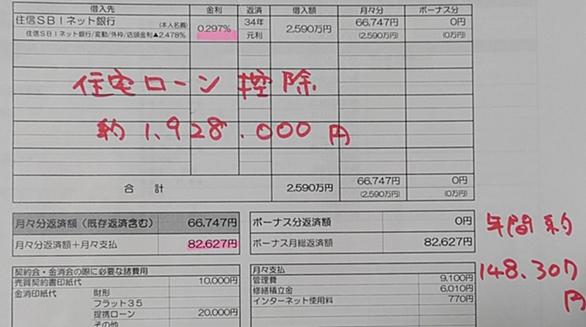 借入先 金利 返済 借入額 月々分 ボーナス分
住信SBIネット銀行 (本人名義) 0.297% 34年 2,590万円 66,747円 0円
住信SBIネット銀行/変動/外枠/店頭金利▲2.478% 元利 (2,590万円) (0万円)
住宅ローン控除
約1,928.000円
合計 2,590万円 66,747円 0円
(2,590万円) (0万円)
月々分返済額(既存返済含む) 66,747円 ボーナス分返済額 0円
月々分返済額+月々支払 82,627円 ボーナス月総返済額 82,627円
年間約
148.307
円
契約会・金消会の際に必要な諸費用 月々支払
売買契約書印紙代 10,000円 管理費 9,100円
金消印紙代 財形 修繕積立金 6,010円
フラット35 インターネット使用料 770円
提携ローン 20,000円
その他